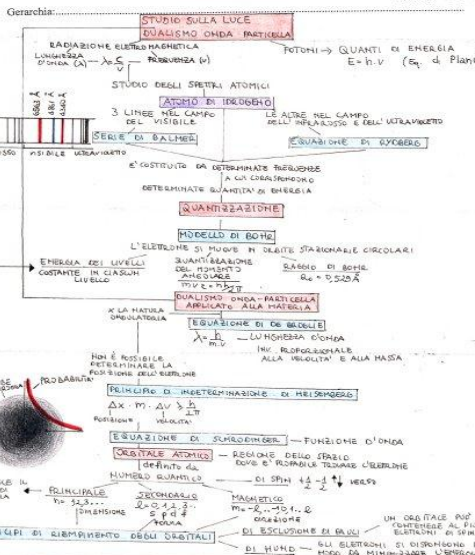 Gerarchia:
STUDIO SULLA LUCE
DUALISMO ONDA PARTICELLA
RADIAZIONE ELETTROMAGNETICA
LUNGHEZZA
D'ONDA (λ) — λ = c/ν — FREQUENZA (ν)
FOTONI → QUANTI DI ENERGIA
E = h·ν (Eq. di
STUDIO DEGLI SPETTRI ATOMICI
ATOMO DI IDROGENO
3 LINEE NEL CAMPO
DEL VISIBILE
LE ALTRE NEL CAMPO
DELL'INFRAROSSO E DELL'ULTRAVIOLETTO
SERIE DI BALMER
EQUAZIONE DI RYDBERG
VISIBILE ULTRAVIOLETTO
E' COSTITUITO DA DETERMINATE FREQUENZE
A CUI CORRISPONDONO
DETERMINATE QUANTITA' DI ENERGIA
QUANTIZZAZIONE
MODELLO DI BOHR
L'ELETTRONE SI MUOVE IN ORBITE STAZIONARIE CIRCOLARI
ENERGIA DEI LIVELLI
COSTANTE IN CIASCUN
LIVELLO
QUANTIZZAZIONE
DEL MOMENTO
ANGOLARE
RAGGIO DI BOHR
DUALISMO ONDA-PARTICELLA
APPLICATO ALLA MATERIA
X LA NATURA
ONDULATORIA
EQUAZIONE DI DE BROGLIE
λ = h/m.v — LUNGHEZZA D'ONDA
INV. PROPORZIONALE
ALLA VELOCITA' E ALLA MASSA
NON È POSSIBILE
DETERMINARE LA
POSIZIONE DELL'ELETTRONE
PROBABILITA'
PRINCIPIO DI INDETERMINAZIONE DI HEISEMBERG
Δx · m · Δv ≥ h/2π
POSIZIONE VELOCITA'
EQUAZIONE DI SCHRODINGER — FUNZIONE D'ONDA
ORBITALE ATOMICO — REGIONE DELLO SPAZIO
DOVE E' PROBABILE TROVARE L'ELETTRONE
definito da
NUMERO QUANTICO
DI SPIN +1/2 -1/2 ↑↓ VERSO
PRINCIPALE
n = 1,2,3...
DIMENSIONE
SECONDARIO
l = 0,1,2,3..
s p d f
FORMA
MAGNETICO
m = -l,..0,1..l
DIREZIONE
DI RIEMPIMENTO DEGLI ORBITALI
DI ESCLUSIONE DI PAULI
UN ORBITALE PUO'
CONTENERE AL
ELETTRONI DI
DI HUND
GLI ELETTRONI SI DISPONGONO
MODO DA MINIMIZZARE